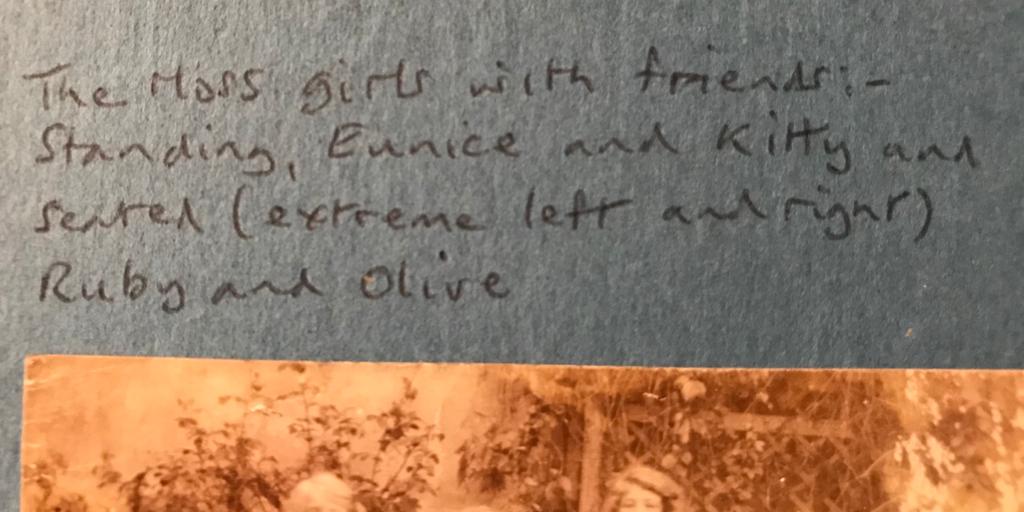 The Moss girls with friends:-
Standing, Eunice and Kitty and
seated (extreme left and right)
Ruby and Olive